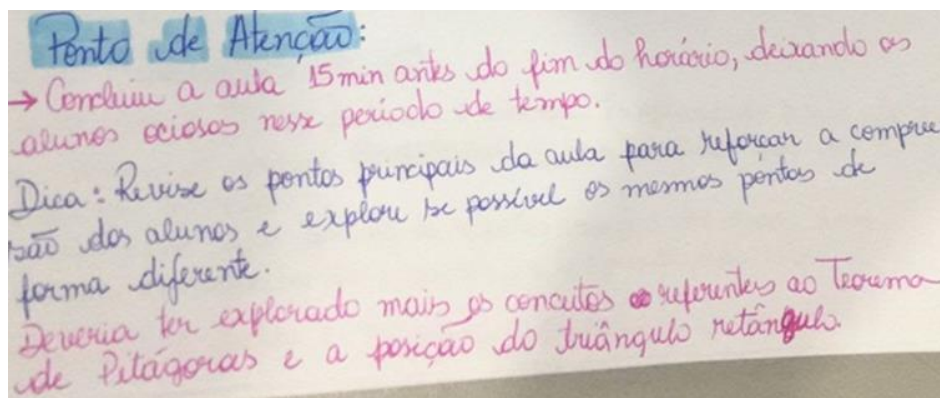 Ponto de Atenção:
→ Concluiu a aula 15min antes do fim do horário, deixando os
alunos ociosos nesse período de tempo.
Dica: Revise os pontos principais da aula para reforçar a compreen
são dos alunos e explore se possível os mesmos pontos de
forma diferente.
Deveria ter explorado mais os conceitos referentes ao Teorema
de Pitágoras e a posição do triângulo retângulo.